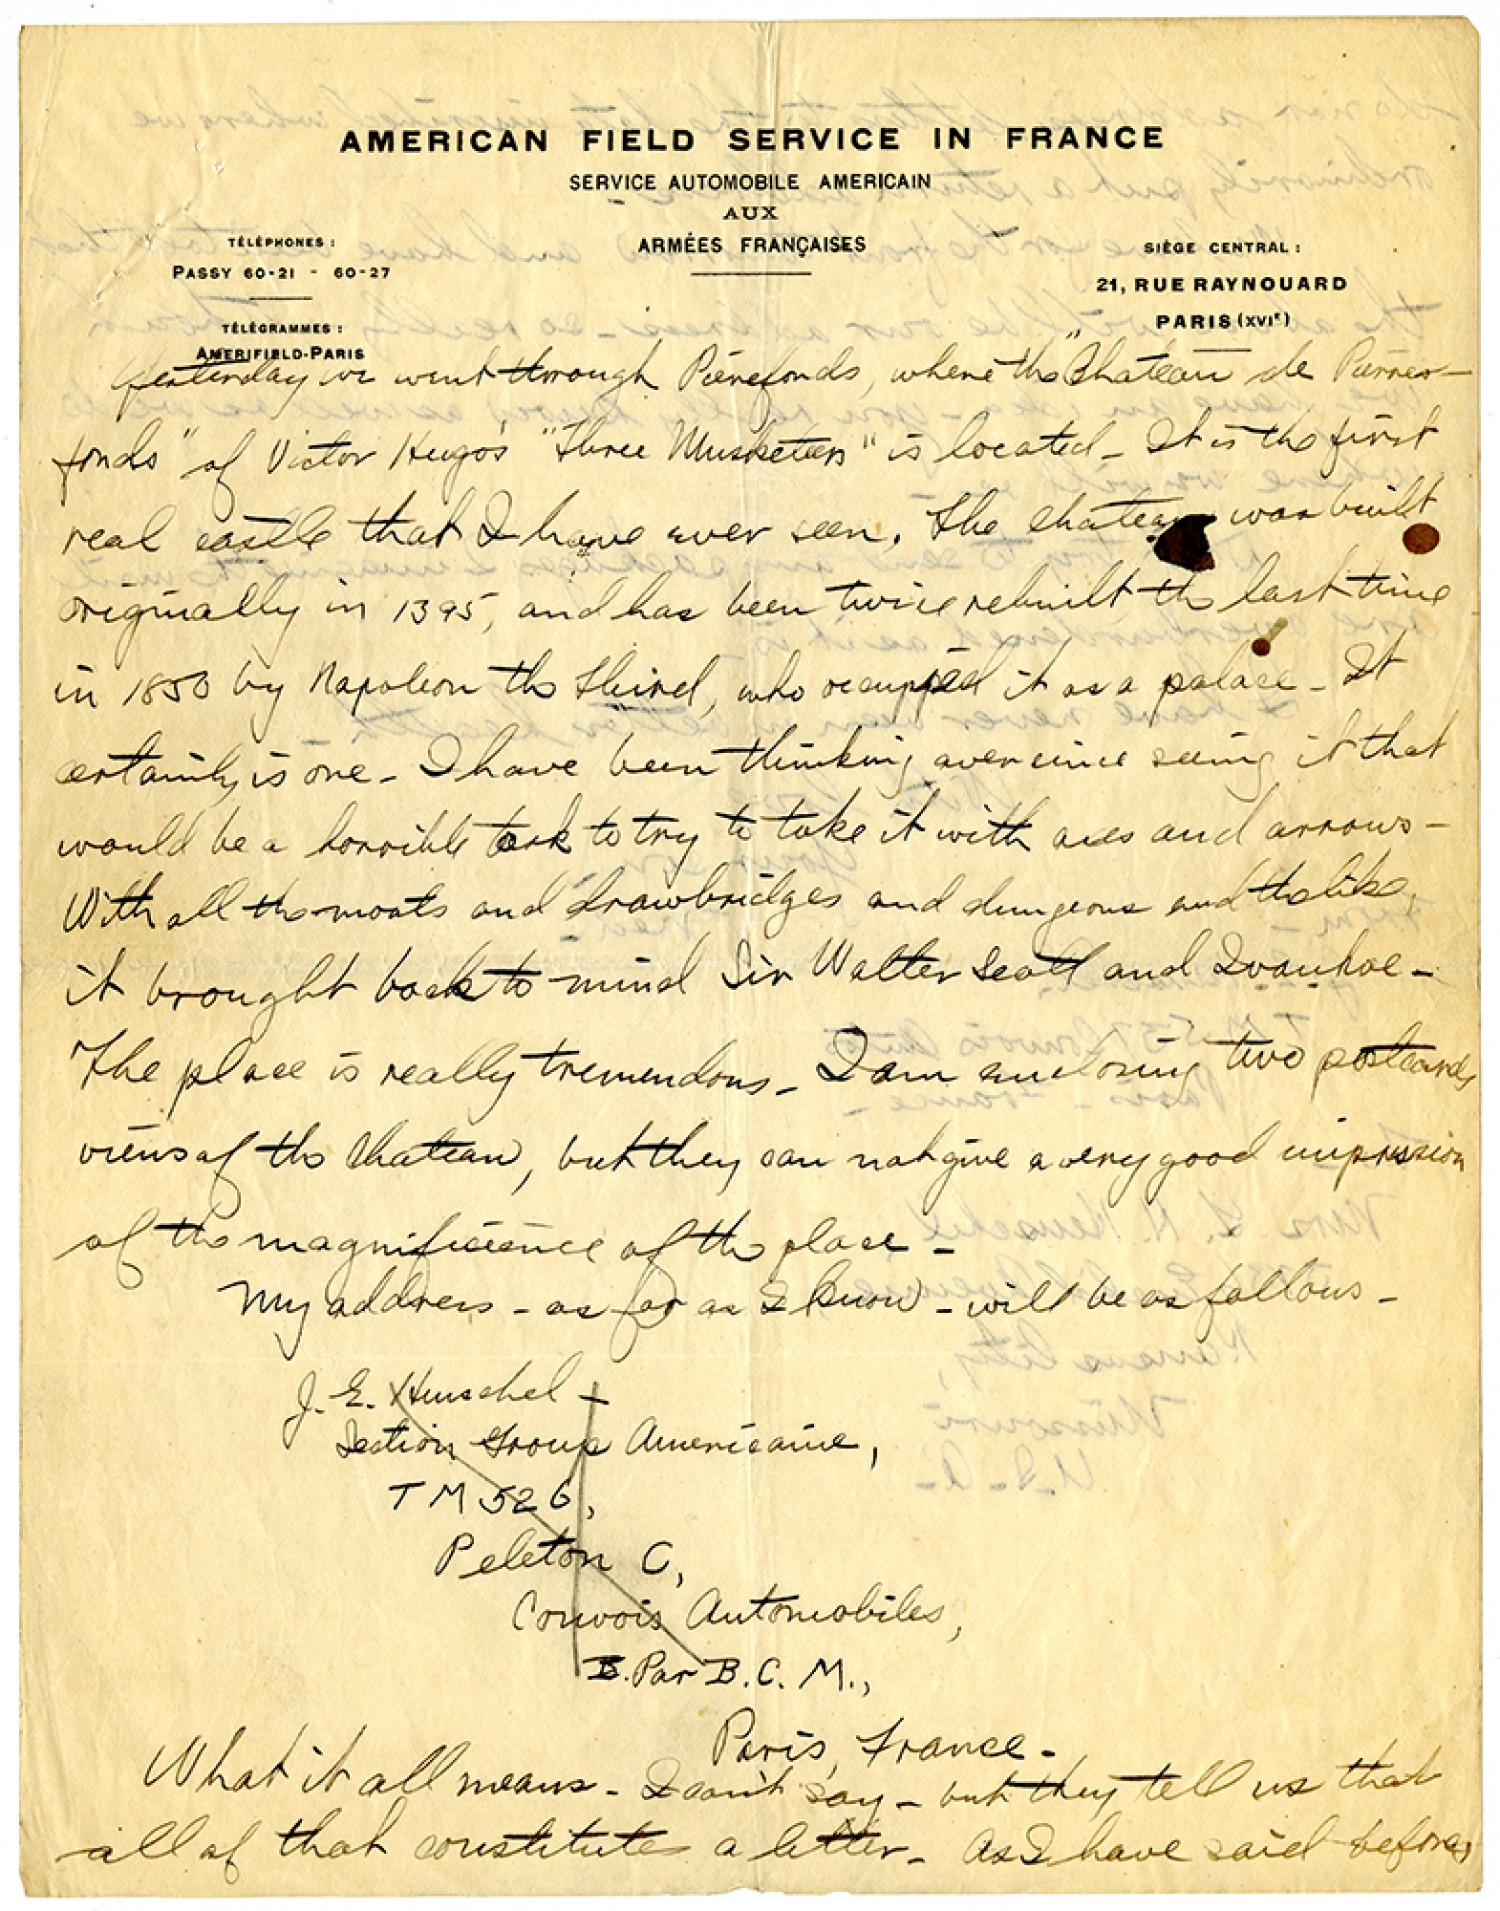 AMERICAN FIELD SERVICE IN FRANCE
SERVICE AUTOMOBILE AMERICAIN
AUX
ARMÉES FRANÇAISES
TÉLÉPHONES :
PASSY 60-21 - 60-27
TÉLÉGRAMMES :
AMERIFIELD-PARIS
SIÈGE CENTRAL :
21, RUE RAYNOUARD
PARIS (XVIe)
Yesterday we went through Pierefonds, where the "Chateau de Pierre-
fonds" of Victor Hugo's "Three Musketeers" is located - It is the first
real castle that I have ever seen. The chateau was built
originally in 1395, and has been twice rebuilt, the last time
in 1850 by Napoleon the Third, who occupied it as a palace - It
certainly is one - I have been thinking ever since seeing it that
would be a horrible task to try to take it with axes and arrows -
With all the moats and drawbridges and dungeons and the like,
it brought back to mind Sir Walter Scott and Ivanhoe -
The place is really tremendous - I am enclosing two postcards
views of the Chateau, but they can not give a very good impression
of the magnificience of the place -
My address - as far as I know - will be as follows -
J. E. Henschel -
Section Group Americaine,
T M 526,
Peleton C,
Convois Automobiles,
Par B. C. M.,
Paris, France -
What it all means - I can't say - but they tell us that
all of that constitutes a letter - As I have said before,